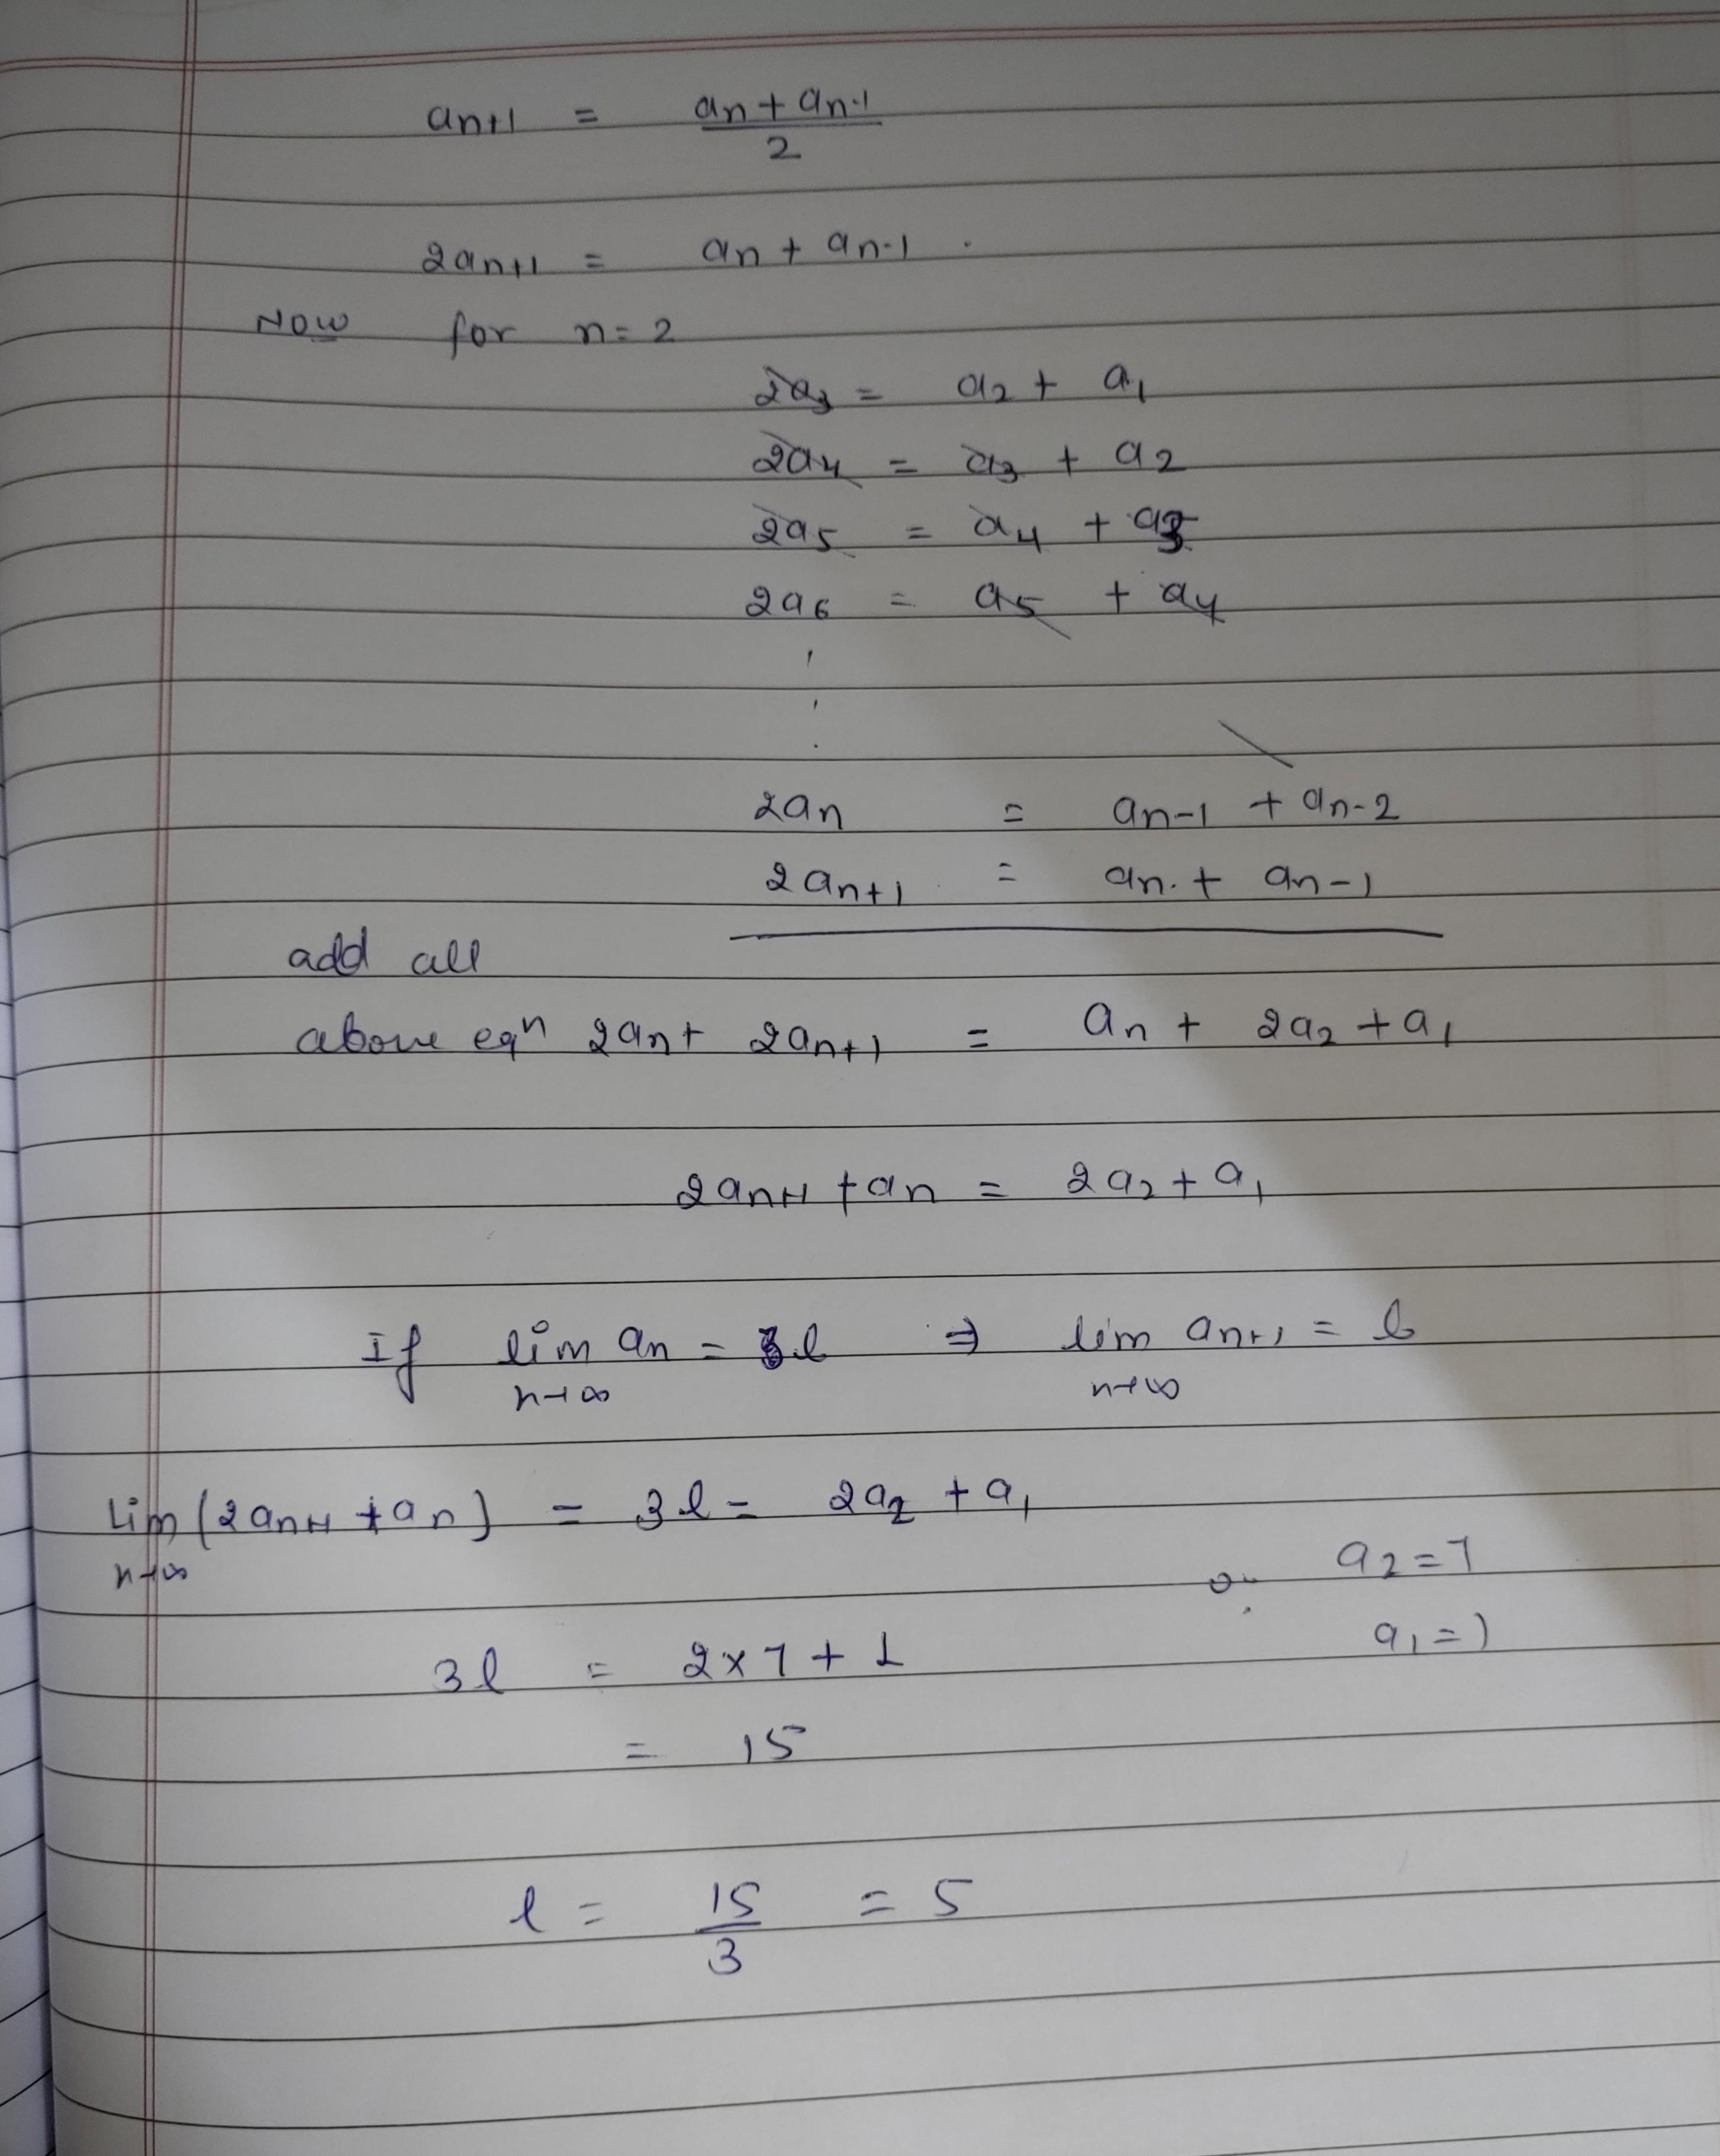 an+1 = an + an-1
2
2an+1 = an + an-1 .
Now for n = 2
2a3 = a2 + a1
2a4 = a3 + a2
2a5 = a4 + a3
2a6 = a5 + a4
2an = an-1 + an-2
2an+1 = an + an-1
add all
above eqn 2an + 2an+1 = an + 2a2 + a1
2an+1 + an = 2a2 + a1
If lim an = l ⇒ lim an+1 = l
n→∞ n→∞
Lim (2an+1 + an) = 3l = 2a2 + a1
n→∞
a2 = 7
a1 = 1
3l = 2×7+1
= 15
l = 15 = 5
3